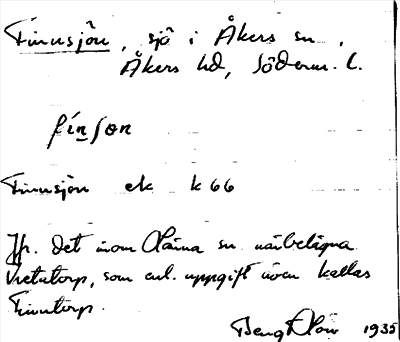 Finnsjön, sjö i Åkers sn,
Åkers hd, Söderm. l.
finʃøn
Finnsjön ek k 66
Jfr. det inom Länna sn närbelägna
Vretatorp, som enl. uppgift även kallas
Finntorp.
Bengt 1935